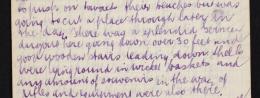 to push on toward their beaches but was
going to cut a place through later in
the day. There was a splendid German
dugout here going down over 30 feet and
good wooden stairs leading down. Shells
were lying round in wicker baskets and
any amount of souvenirs in the way of
rifles and equipment were also there,